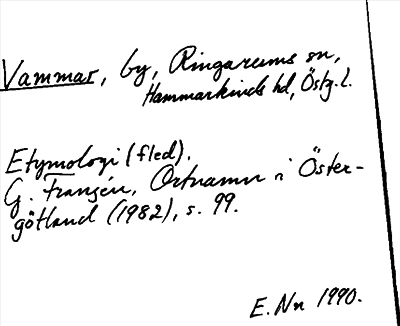 Vammar, by, Ringarums sn,
Hammarkinds hd, Östg. l.
Etymologi (fled).
G. Franzén, Ortnamn i Öster-
götland (1982), s. 99.
E. Nn 1990.